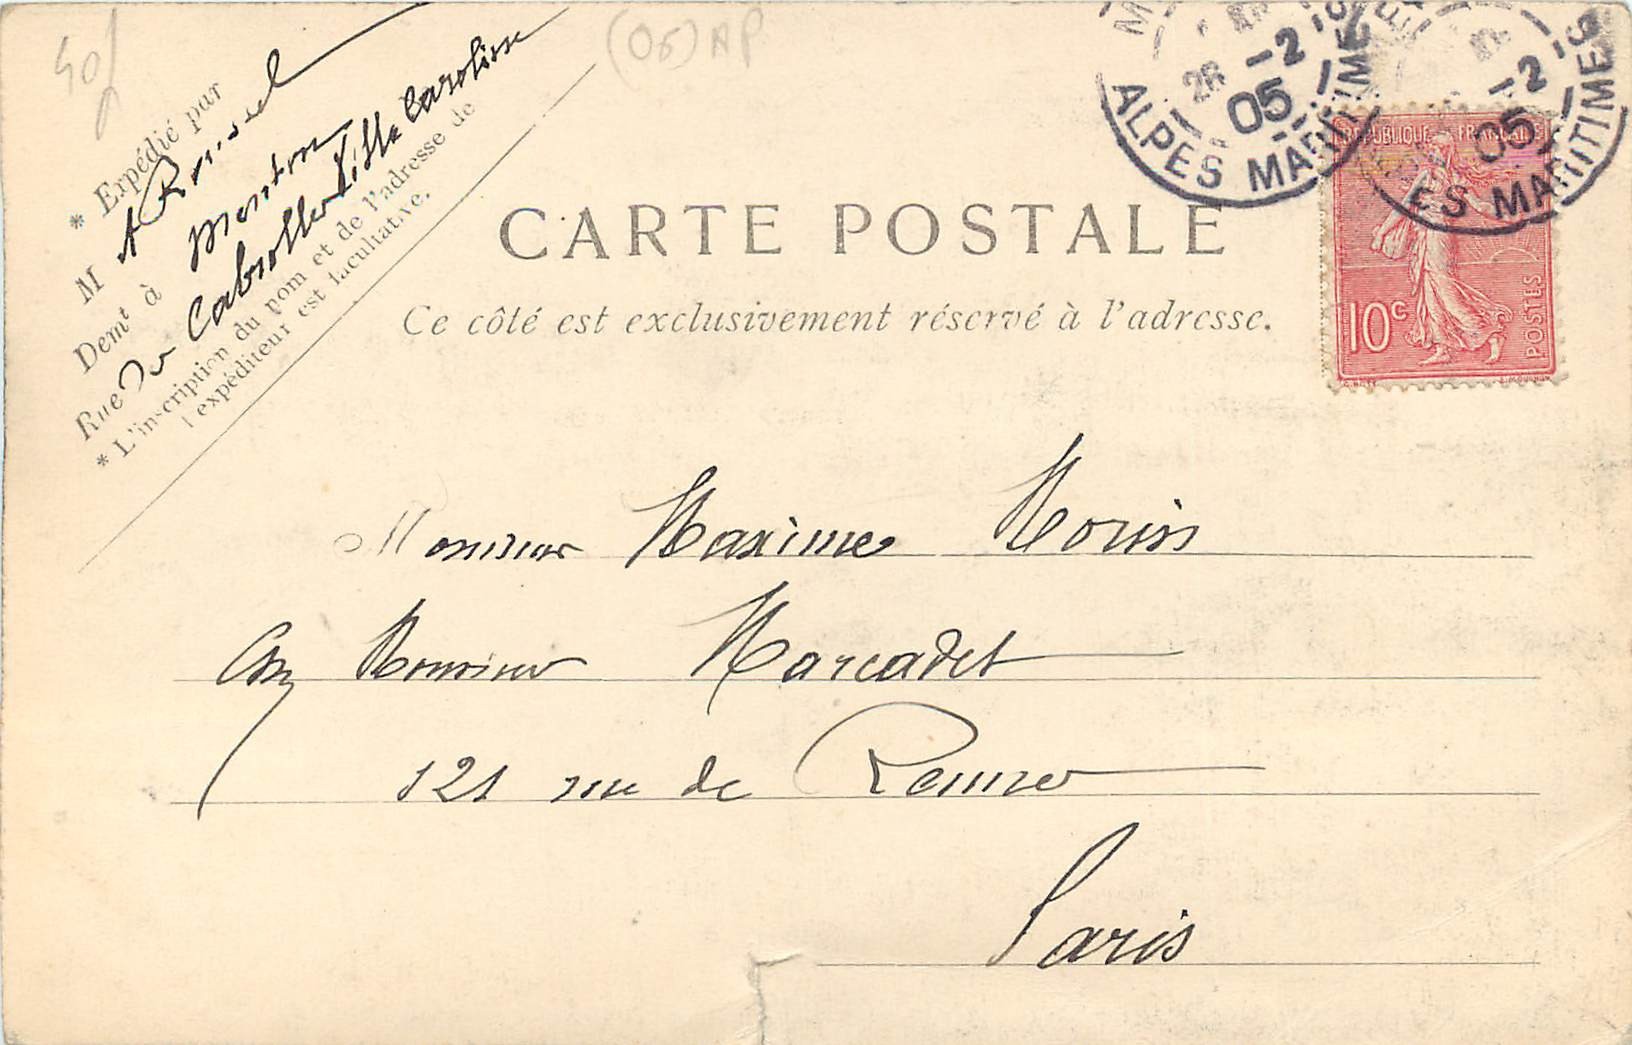 40f
(06) AP
* Expédié par
M A Roussel
Demt à Menton
Rue De Cabrolles Villa Caroline
* L'inscription du nom et de l'adresse de
l'expéditeur est facultative.
26 -2 05
ALPES MARITIMES
-2 05
ES MARITIMES
RÉPUBLIQUE FRANÇAISE
10 c
POSTES
O. ROTY
L. MOUCHON
CARTE POSTALE
Ce côté est exclusivement réservé à l'adresse.
Monsieur Maxime Morin
Chez Monsieur Marcadet
121 rue de Rennes
Paris